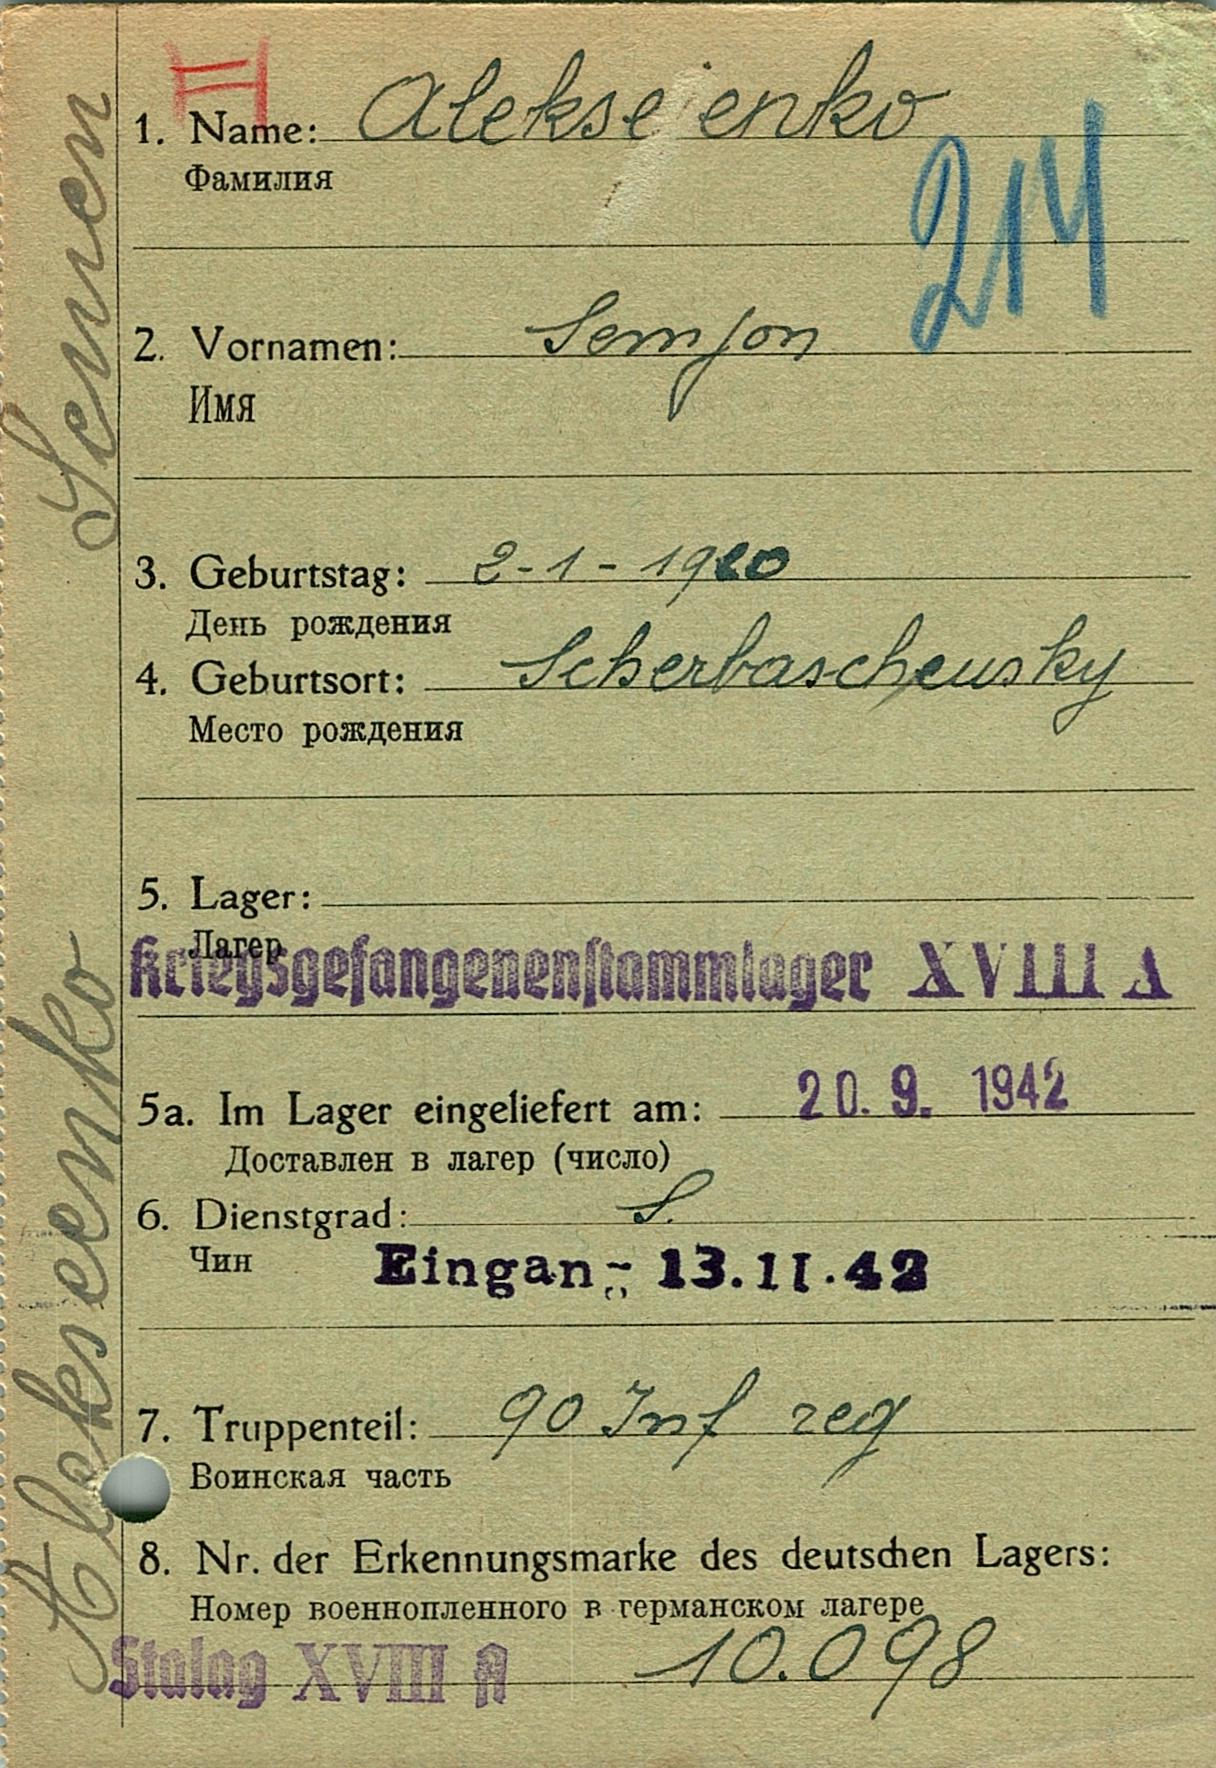 1. Name: Alekseenko
Фамилия
214
2. Vornamen: Semjon
Имя
3. Geburtstag: 2-1-1920
День рождения
4. Geburtsort: Scherbaschewsky
Место рождения
5. Lager:
Лагер
Kriegsgefangenenstammlager XVIII A
5a. Im Lager eingeliefert am: 20. 9. 1942
Доставлен в лагер (число)
6. Dienstgrad: S.
Чин
Eingang 13.11.42
7. Truppenteil: 90 Inf reg
Воинская часть
8. Nr. der Erkennungsmarke des deutschen Lagers:
Номер военнопленного в германском лагере
Stalag XVIII A 10.098
Alekseenko Semen